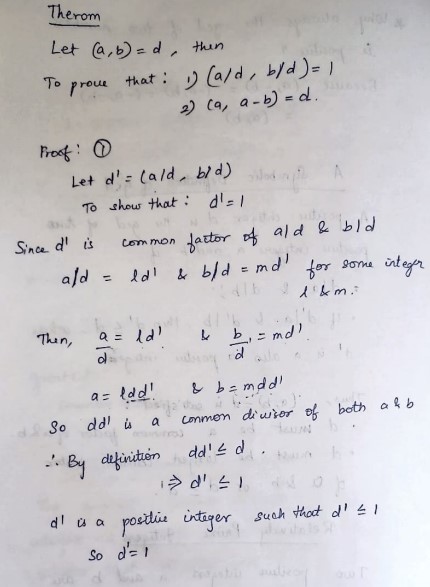 Therom
Let (a,b) = d, then
To prove that : 1) (a/d, b/d) = 1
2) (a, a-b) = d.
Proof : ①
Let d' = (a/d, b/d)
To show that : d' = 1
Since d' is common factor of a/d & b/d
a/d = ld' & b/d = md' for some integer
l & m.
Then, a/d = ld' & b/d = md'
a = ldd' & b = mdd'
So dd' is a common divisor of both a & b
∴ By definition dd' ≤ d.
⇒ d' ≤ 1
d' is a positive integer such that d' ≤ 1
So d' = 1